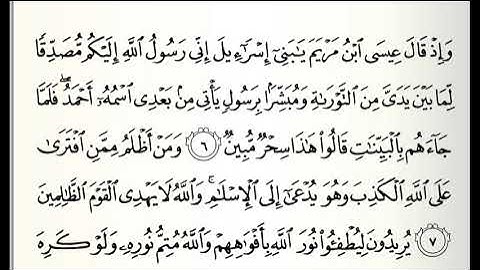 وَإِذْ قَالَ عِيسَى ٱبْنُ مَرْيَمَ يَـٰبَنِىٓ إِسْرَٰٓءِيلَ إِنِّى رَسُولُ ٱللَّهِ إِلَيْكُم مُّصَدِّقًا
لِّمَا بَيْنَ يَدَىَّ مِنَ ٱلتَّوْرَىٰةِ وَمُبَشِّرًۢا بِرَسُولٍ يَأْتِى مِنۢ بَعْدِى ٱسْمُهُۥٓ أَحْمَدُ ۖ فَلَمَّا
جَآءَهُم بِٱلْبَيِّنَـٰتِ قَالُوا۟ هَـٰذَا سِحْرٌ مُّبِينٌ ٦ وَمَنْ أَظْلَمُ مِمَّنِ ٱفْتَرَىٰ
عَلَى ٱللَّهِ ٱلْكَذِبَ وَهُوَ يُدْعَىٰٓ إِلَى ٱلْإِسْلَـٰمِ ۚ وَٱللَّهُ لَا يَهْدِى ٱلْقَوْمَ ٱلظَّـٰلِمِينَ
٧ يُرِيدُونَ لِيُطْفِـُٔوا۟ نُورَ ٱللَّهِ بِأَفْوَٰهِهِمْ وَٱللَّهُ مُتِمُّ نُورِهِۦ وَلَوْ كَرِهَ